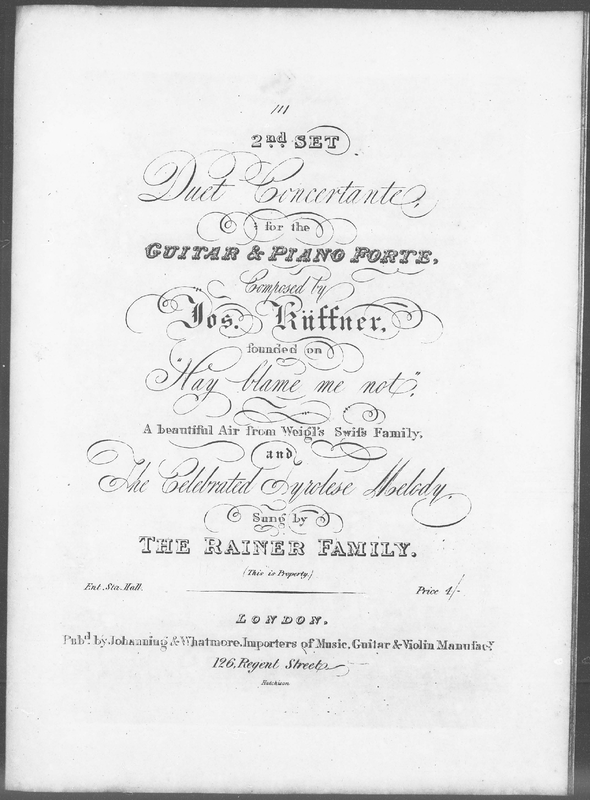 2nd SET
Duet Concertante,
for the
GUITAR & PIANO FORTE,
Composed by
Jos. Küffner,
founded on
"Nay blame me not",
A beautiful Air from Weigl's Swiſs Family,
and
The Celebrated Tyrolese Melody
Sung by
THE RAINER FAMILY.
(This is Property.)
Ent. Sta. Hall. Price 4/-
LONDON,
Pubd. by Johanning & Whatmore, Importers of Music, Guitar & Violin Manufacy.
126, Regent Street
Hutchison